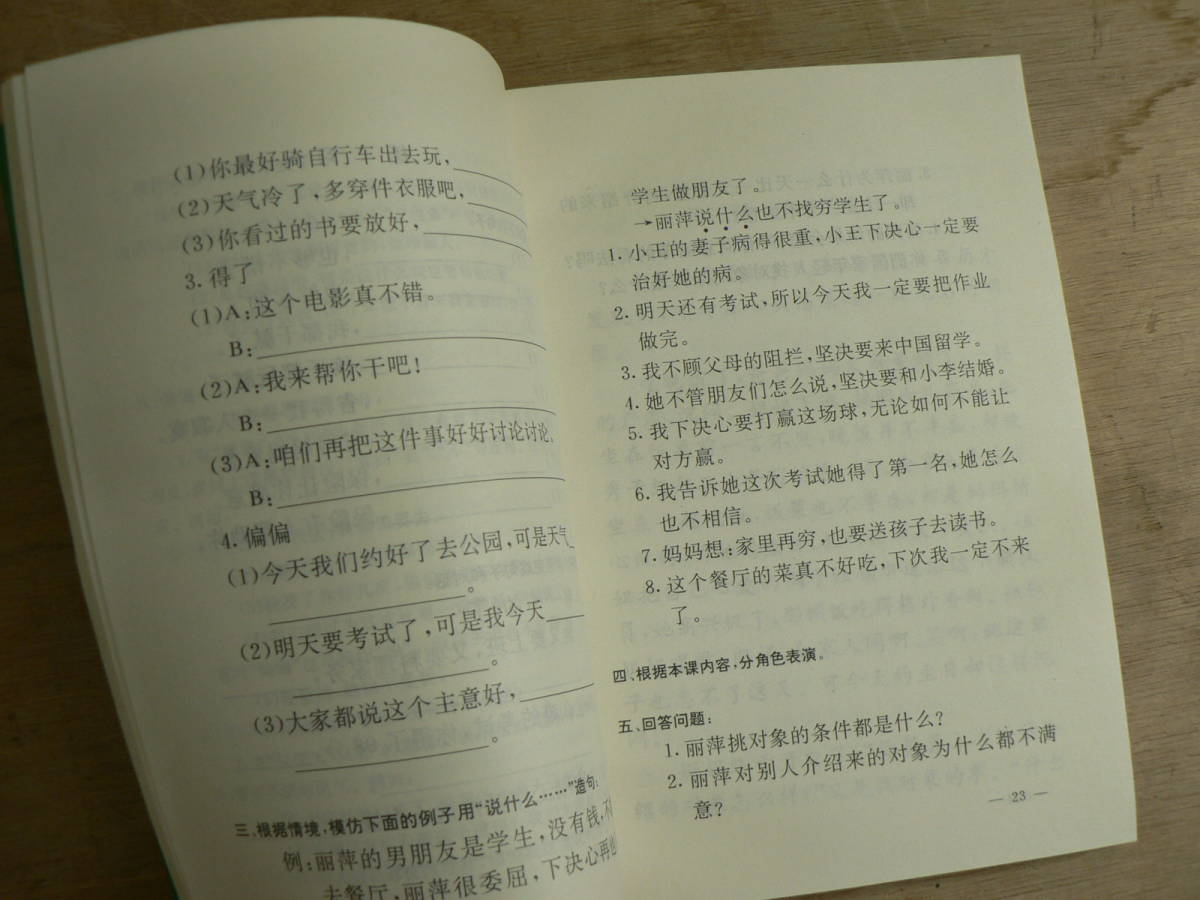 (1)你最好骑自行车出去玩，
(2)天气冷了，多穿件衣服吧，
(3)你看过的书要放好，
3. 得了
(1)A：这个电影真不错。
B：
(2)A：我来帮你干吧！
B：
(3)A：咱们再把这件事好好讨论讨论。
B：
4. 偏偏
(1)今天我们约好了去公园，可是天气
。
(2)明天要考试了，可是我今天
。
(3)大家都说这个主意好，
。
三、根据情境，模仿下面的例子用“说什么……”造句：
例：丽萍的男朋友是学生，没有钱，不
去餐厅，丽萍很委屈，下决心再也
学生做朋友了。
→丽萍说什么也不找穷学生了。
1. 小王的妻子病得很重，小王下决心一定要
治好她的病。
2. 明天还有考试，所以今天我一定要把作业
做完。
3. 我不顾父母的阻拦，坚决要来中国留学。
4. 她不管朋友们怎么说，坚决要和小李结婚。
5. 我下决心要打赢这场球，无论如何不能让
对方赢。
6. 我告诉她这次考试她得了第一名，她怎么
也不相信。
7. 妈妈想：家里再穷，也要送孩子去读书。
8. 这个餐厅的菜真不好吃，下次我一定不来
了。
四、根据本课内容，分角色表演。
五、回答问题：
1. 丽萍挑对象的条件都是什么？
2. 丽萍对别人介绍来的对象为什么都不满
意？
— 23 —